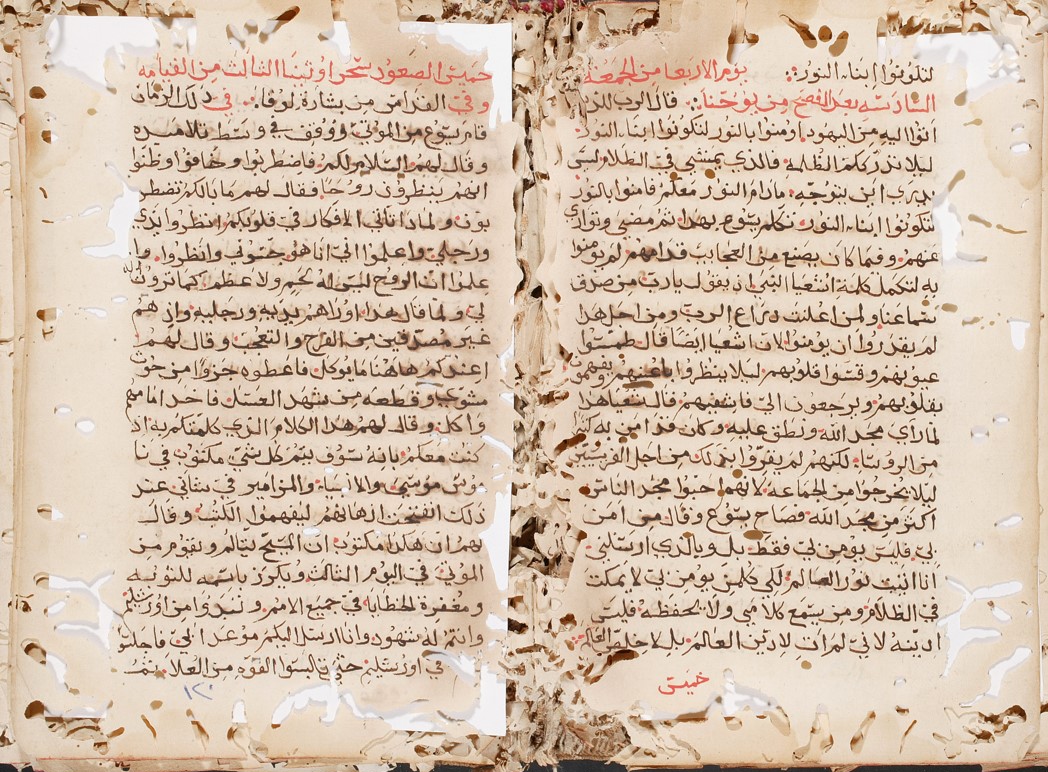 لتكونوا ابناء النور: يوم الاربعا من الجمعة
السادسه بعد الفصح من يوحنا: قال الرب للذين
اتوا اليه من اليهود اومنوا بالنور لتكونوا ابناء النور
ليلا تدرككم الظلمه فالذي يمشي في الظلام ليس
يدرى اين يتوجه مادام النور معكم فامنوا بالنور
لتكونوا ابناء النور تكلم يسوع بهدا ثم مضى وتوارى
عنهم وفيما كان يصنع من العجايب قدامهم لم يومنوا
به لتكمل كلمة اشعيا النبي اذ يقول يارب من صدق
سماعنا ولمن اعلنت دراع الرب ومن اجل هدا
لم يقدروا ان يومنوا لان اشعيا ايضا قال طمسوا
عيونهم وقسوا قلوبهم ليلا ينظروا باعينهم ويفهمون
بقلوبهم ويرجعون الي فاشفيهم قال شعيا هدا
لما راى مجد الله ونطق عليه وكان قد امن به كثير
من الروسا لكنهم لم يقروا بدلك من اجل الفريسيين
ليلا يخرجوا من الجماعه لانهم احبوا مجد الناس
اكتر من مجد الله فصاح يسوع وقال من امن
بي فليس يومن بي فقط بل وبالدي ارسلني
انا اتيت نور العالم لكي كلمن يومن بي لا يمكت
في الظلام ومن يسمع كلامي ولا يحفظه فليس
ادينه لاني لم ات لادين العالم بل لاخلص العالم
خميس
خميس الصعود سحر اوتينا الثالث من القيامه
وفي القداس من بشارة لوقا: في دلك الزمان
قام يسوع من الموتى ووقف في وسط تلاميده
وقال لهم السلام لكم فاضطربوا وخافوا وظنوا
انهم ينظرون روحا فقال لهم ما بالكم تضطر
بون ولمادا تاتي الافكار في قلوبكم انظروا يدي
ورجلي واعلموا اني انا هو جسوني وانظروا وا
علموا ان الروح ليس له لحم ولا عظم كما ترون
لي ولما قال هدا اوراهم يديه ورجليه واذ هم
غير مصدقين من الفرح والتعجب وقال لهم
اعندكم هاهنا ما يوكل فاعطوه جزوا من حوت
مشوي وقطعه من شهد العسل فاخد امامهم
واكل وقال لهم هدا الكلام الدي كلمتكم به اد
كنت معكم بانه سوف يتم كل شي مكتوب في نا
موس موسى والانبياء والمزامير في شاني عند
دلك انفتحن ادهانهم ليفهموا الكتب وقال
لهم ان هكدا مكتوب ان المسيح يتالم ويقوم من
الموتى في اليوم الثالث ويكرز باسمه للتوبه
ومغفرة الخطايا في جميع الامم وتبدوا من اورشليم
وانتم له شهود وانا ارسل اليكم موعد ابي فاجلسوا
في اورشليم حتى تلبسوا القوه من العلا تمت
١٢٠